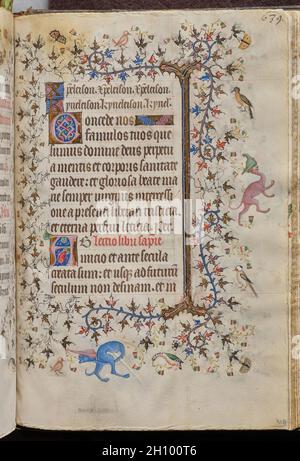 xpeleison. Xpeleison. Xpeleison.
kyrieleison. kyrieleison. kyriel.
Concede nos
famulos tuos que
sumus domine deus perpetu
a mentis et corporis sanitate
gaudere: et gloriosa beate ma
rie semper virginis
one a presenti liberari tristicia
et eterna perfrui leticia.
Lectio libri sapie
Ab inicio et ante secula
creata sum: et usque ad futurum
seculum non desinam. et in